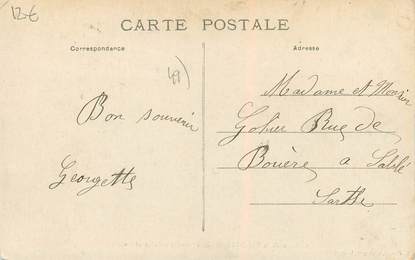 12€
CARTE POSTALE
Correspondance
Adresse
49)
Bon souvenir
Georgette
Madame et Monsieur
Gohier Rue de
Bouère a Sablé
Sarthe